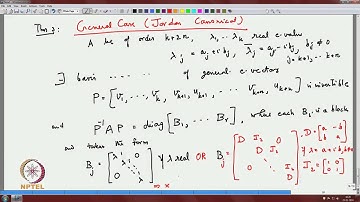 Thm 3: General Case (Jordan Canonical)
A be of order k+2n, λ1, ... λk real e-value
λj = aj + i bj, λ̄j = aj - i bj, bj ≠ 0
j = k+1, ... k+n
∃ basis ... of general. e-vectors
P = [v1, ... vk, vk+1, uk+1, ... vk+n, uk+n] is invertible
and P⁻¹ A P = diag [B1, ... Br], where each Bj is a block
and takes the form
Bj = [λ 1 0 λ 1 0 λ] if λ real OR Bj = [D I2 0 D I2 0 D], D = [a -b b a]
if λ = a + ib,
I2 = [1 0 0 1]
NPTEL